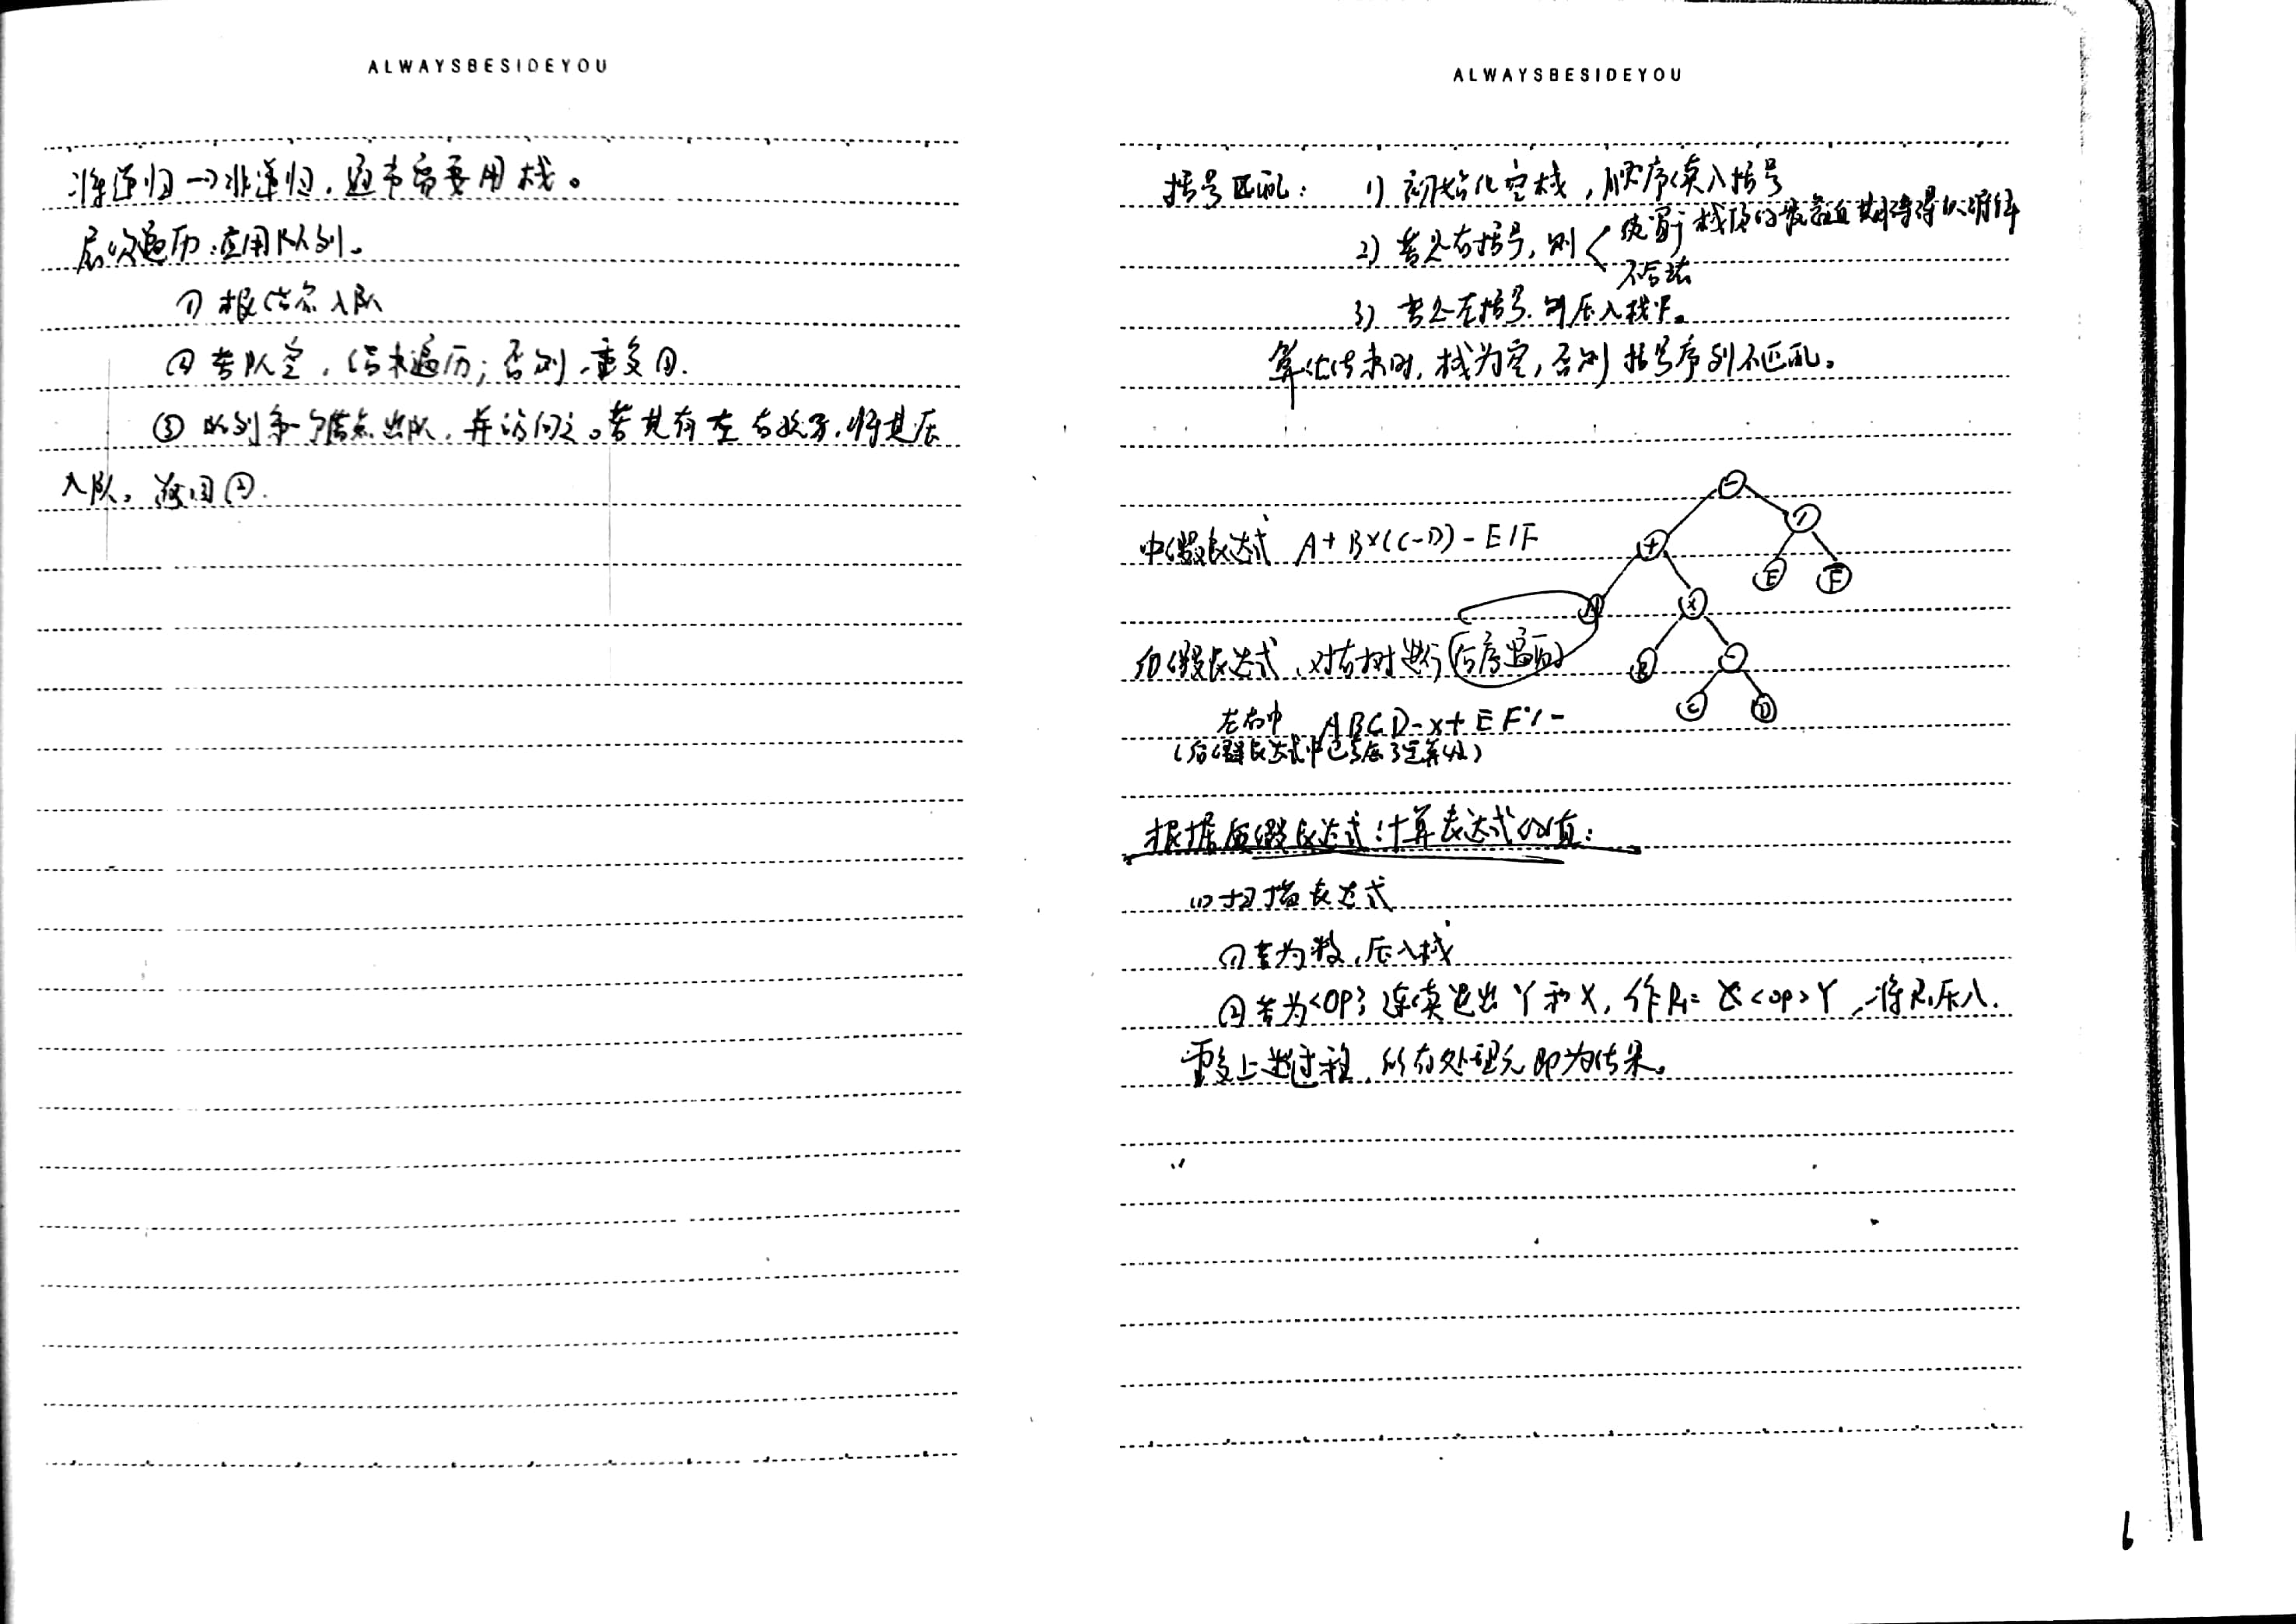 ALWAYSBESIDEYOU
将递归→非递归，通常需要用栈。
层次遍历：应用队列。
① 根结点入队
② 若队空，结束遍历；否则，重复③.
③ 队列第一个结点出队，并访问之。若其有左右孩子，将其压
入队。返回②.
ALWAYSBESIDEYOU
括号匹配： 1) 初始化空栈，顺序读入括号
2) 若是右括号，则 使置于栈顶的最近期待得以消解
不合法
3) 若是左括号，则压入栈中。
算法结束时，栈为空，否则括号序列不匹配。
中缀表达式 A+B×(C-D)-E/F
后缀表达式，对右树进行(后序遍历)
左右中 ABCD-×+EF/-
(后缀表达式中已考虑了运算优)
- / + E F A × B - C D
根据后缀表达式计算表达式的值：
(1) 扫描表达式
① 若为数，压入栈
② 若为<OP> 连续退出Y和X，作R= X<op>Y，将R压入.
重复上述过程，所有处理完即为结果。
6